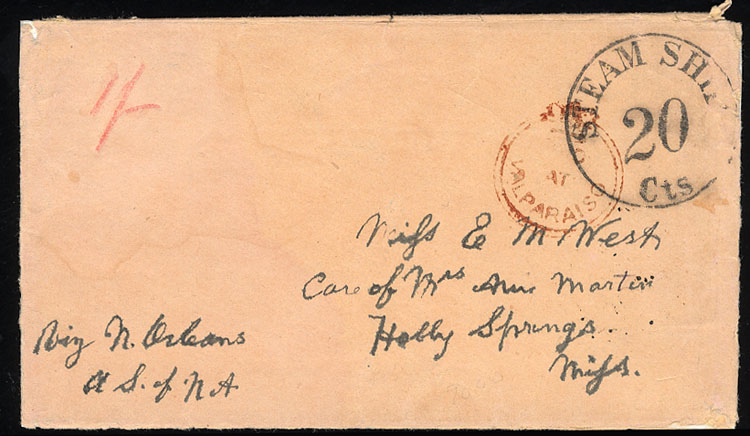 1/-
STEAM SHIP
20
Cts
PAID
AT
VALPARAISO
Miss E M West
Care of Mrs Ann Martin
Holly Springs.
Miss.
Via N. Orleans
U S. of N A